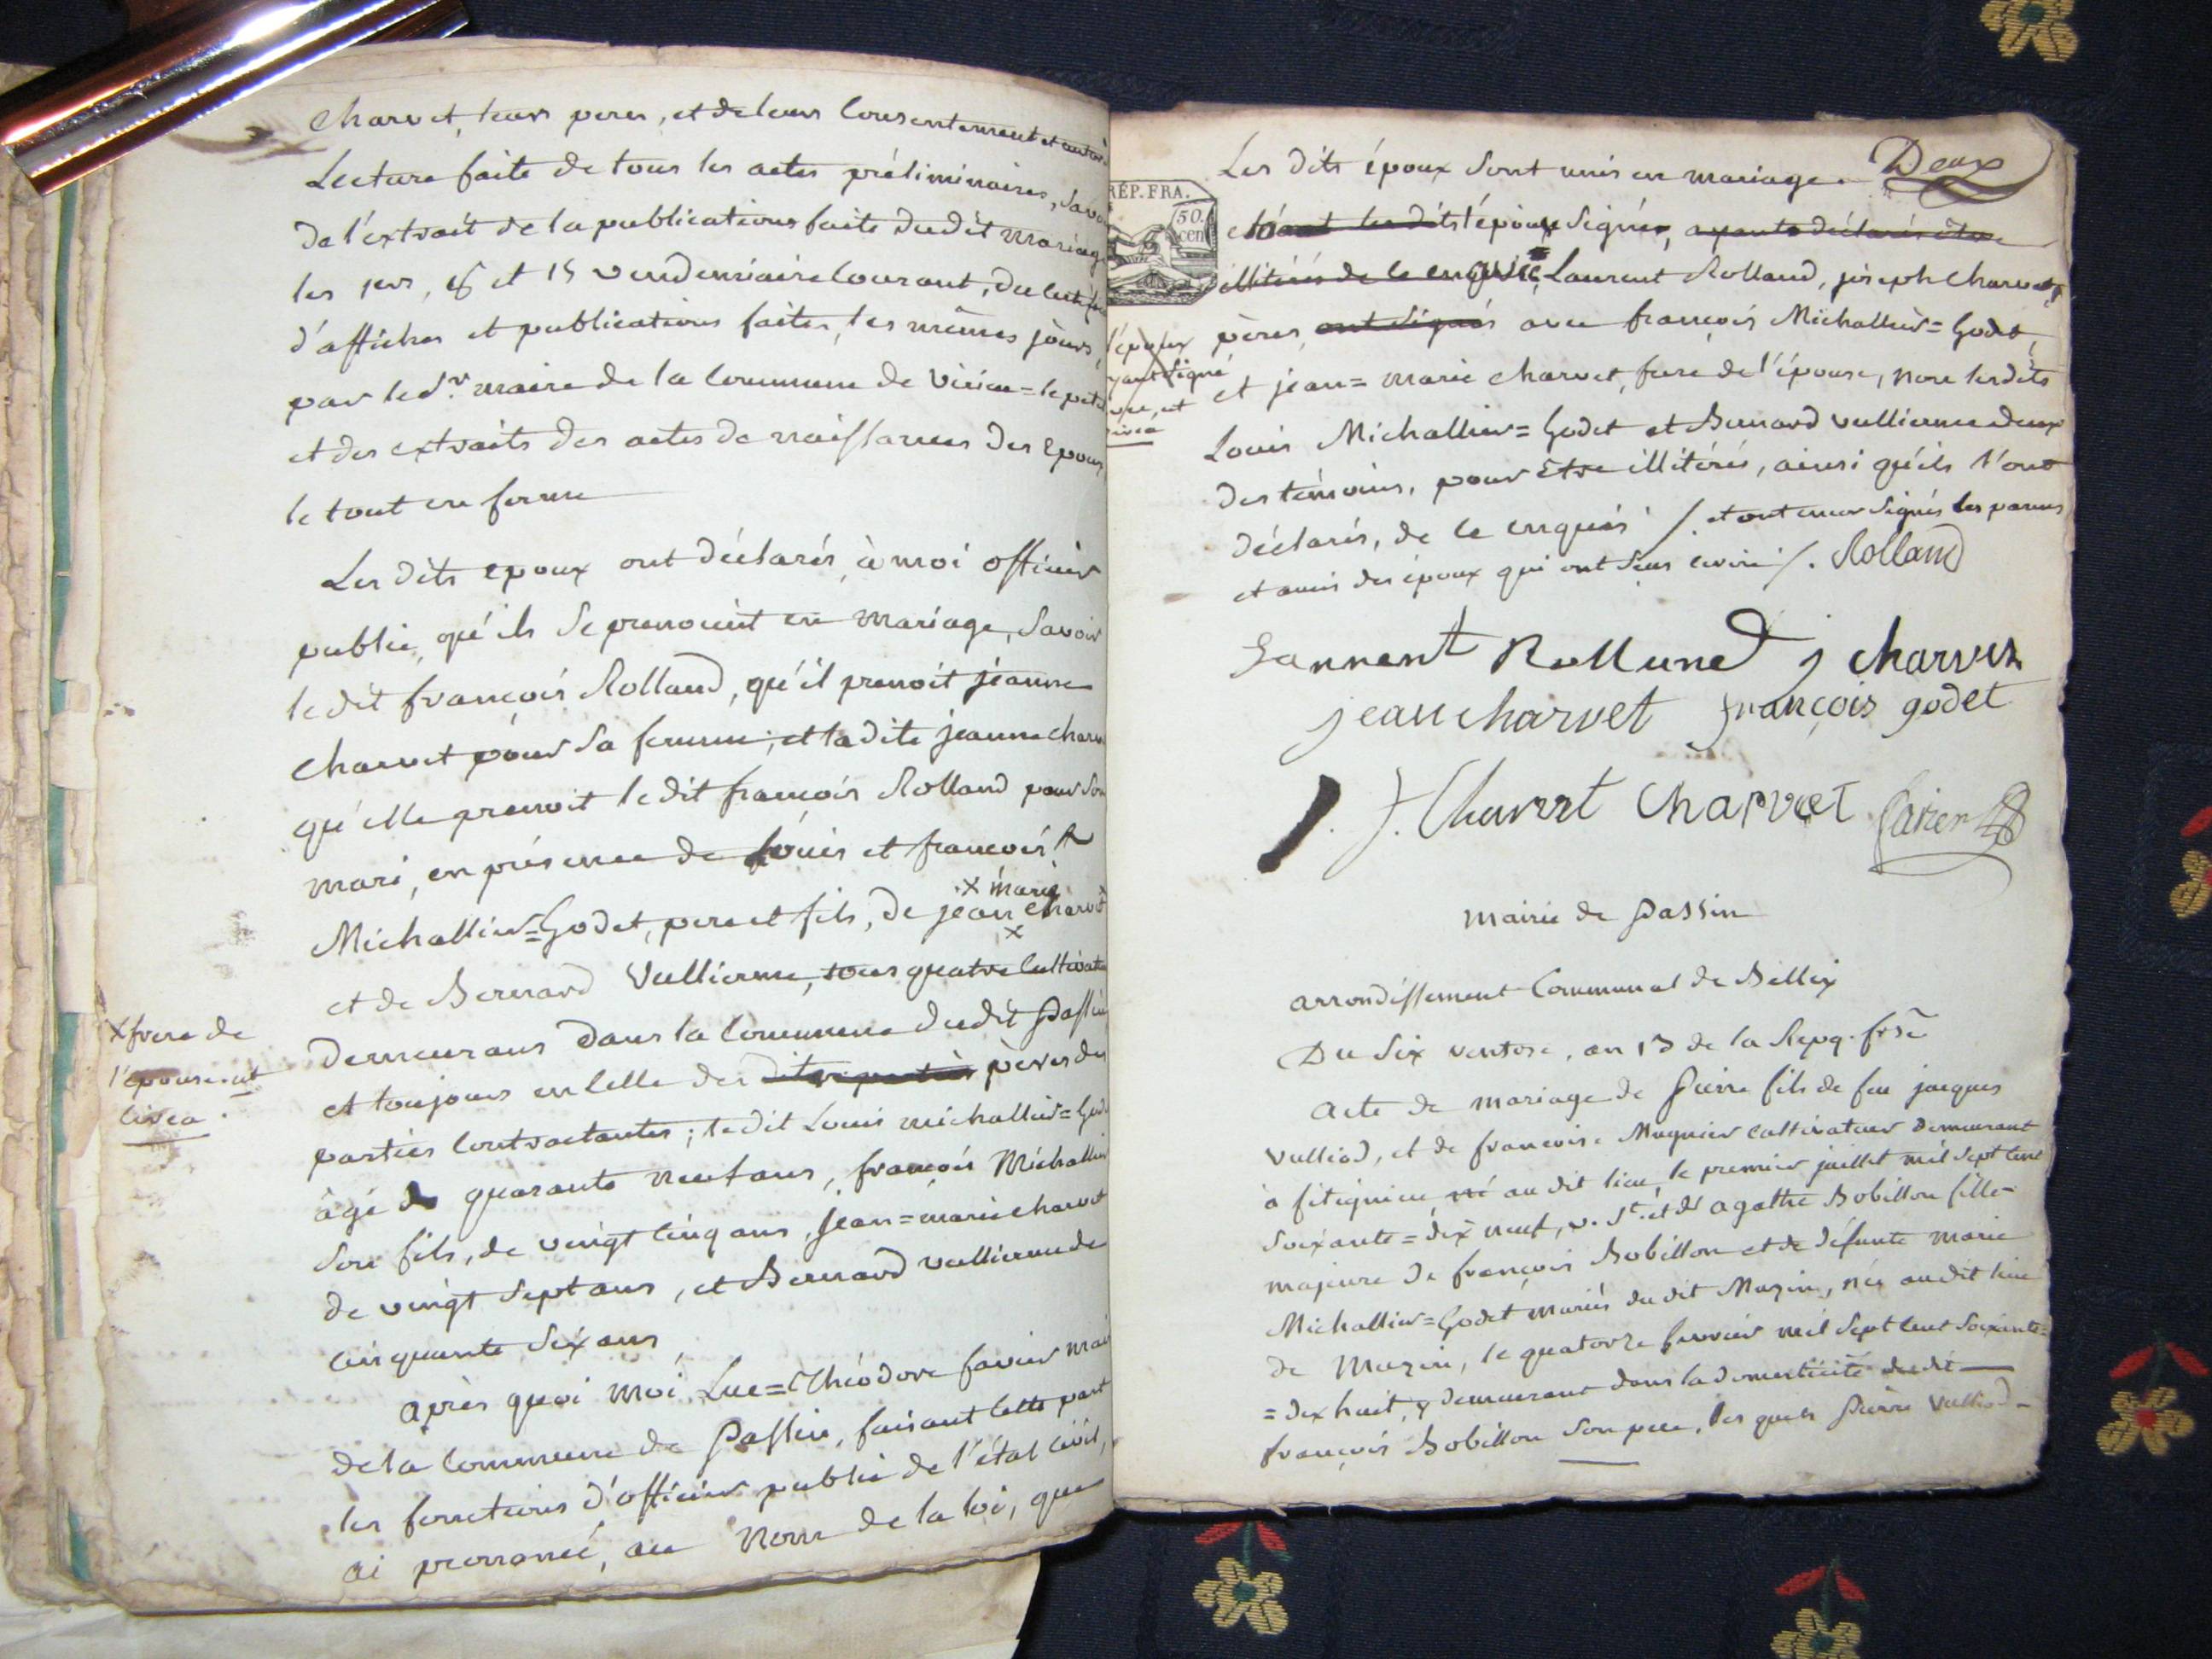 charvet, leurs peres, et de leurs consentement et
Lecture faite de tous les actes préliminaires,
de l'extrait de la publications faite dudit mariag
les 1ers, 8 et 15 vendemiaire courant,
d'affiches et publications faites, les mêmes jours,
par le Sr. maire de la commune de virieu=le petit
et des extraits des actes de naissances des Epoux,
le tout en forme
Les dits epoux ont déclarés, à moi officier
public, qu'ils se prenoient en mariage, Savoir
le dit françois Rolland, qu'il prenoit jeanne
charvet pour Sa femme; et la dite jeanne charv
qu'elle prenoit le dit françois Rolland pour Son
mari, en présence de Louis et françois
x marie
Michallier=Godet, pere et fils, de jean charvet
x
et de Bernard Vullierme, tous quatre cultivate
x frere de
l'épouse. et
civea.
demeurans dans la commune dudit Passin
et toujours en celle des pères des
parties contractantes; le dit Louis michallier=God
âgé de quarante neuf ans, françois Michallier
Son fils, de vingt cinq ans, jean=marie charvet
de vingt Sept ans, et Bernard vullierme de
cinquante Six ans
après quoi moi Luc=Théodore favier mai
de la commune de Passin, faisant cette part
les fonctions d'officier public de l'état civil,
ai prononcé, au nom de la loi, que
Deux
Les dits époux Sont unis en mariage.
RÉP. FRA.
50.
cen
les dits l'époux Signés, ayants déclarés être
illitérés de ce enquis, Laurent Rolland, joseph charvet,
l'époux
yant Signé
pères, ont Signés avec françois Michallier=Godet,
et jean=marie charvet, frere de l'épouse, non lesdits
Louis Michallier=Godet et Bernard vullierme deux
des témoins, pour être illitérés, ainsi qu'ils l'ont
déclarés, de ce enquis /. et ont encor Signés les parens
et amis des époux qui ont Seus ecrire /. Rolland
Lannent Rollund j charvex
jean charvet françois godet
J. Charvet Charvet favier
mairie de Passin
arrondissement Communal de Belley
Du Six ventose, an 13 de la Repq. frse
acte de mariage de Pierre fils de feu jacques
vulliod, et de francoise Mugnier cultivateur demeurant
à fitignieu, né au dit lieu, le premier juillet mil Sept cent
Soixante=dix neuf, v. St. et de agathe Bobillon fille
majeure de françois Bobillon et de défunte marie
Michallier=Godet mariés du dit Mazin, née audit lieu
de Mazin, le quatorze mil Sept cent Soixante=
=dix huit, y demeurant dans la domesticité dudit
françois Bobillon Son pere, les quels Pierre Vulliod